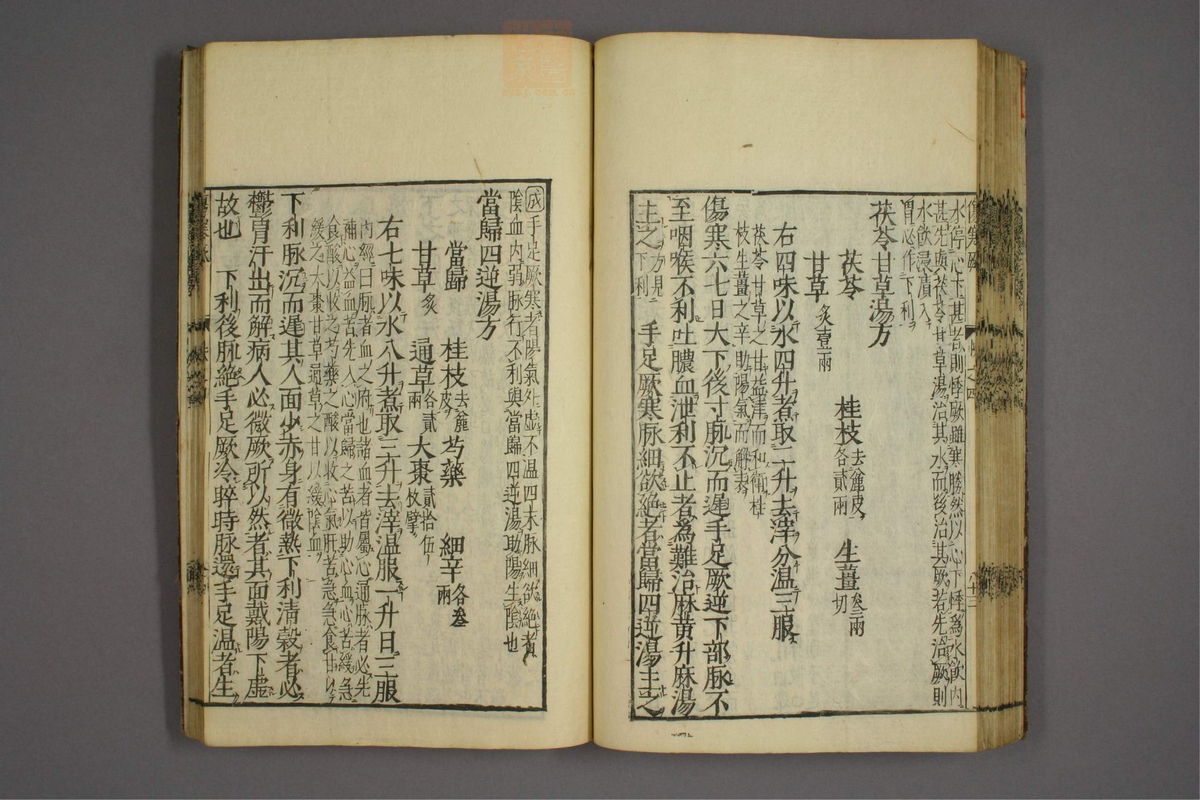 水停心下甚者則悸厥雖寒勝然以心下悸爲水飲内
甚先與茯苓甘草湯治其水而後治其厥若先治厥則
水飲浸漬入
胃必作下利
茯苓甘草湯方
茯苓 桂枝去麄皮各貳兩 生薑叁兩切
甘草炙壹兩
右四味以水四升煮取二升去滓分温三服
茯苓甘草之甘益津而和衛桂
枝生薑之辛助陽氣而解表
傷寒六七日大下後寸脉沉而遲手足厥逆下部脉不
至咽喉不利吐膿血泄利不止者為難治麻黄升麻湯
主之方見下利 手足厥寒脉細欲絶者當歸四逆湯主之
成手足厥寒者陽氣外虚不温四末脉細欲絶者
陰血内弱脉行不利與當歸四逆湯助陽生陰也
當歸四逆湯方
當歸 桂枝去麄皮 芍藥 細辛各叁兩
甘草炙 通草各貳兩 大棗貳拾伍枚擘
右七味以水八升煮取三升去滓温服一升日三服
内經曰脉者血之府也諸血者皆屬心通脉者必先
補心益血苦先入心當歸之苦以助心血心苦緩急
食酸以收之芍藥之酸以收心氣肝苦急急食甘以
緩之大棗甘草通草之甘以緩陰血
下利脉沉而遲其人面少赤身有微熱下利清穀者必
欝冒汗出而解病人必微厥所以然者其面戴陽下虚
故也 下利後脉絶手足厥冷晬時脉還手足温者生